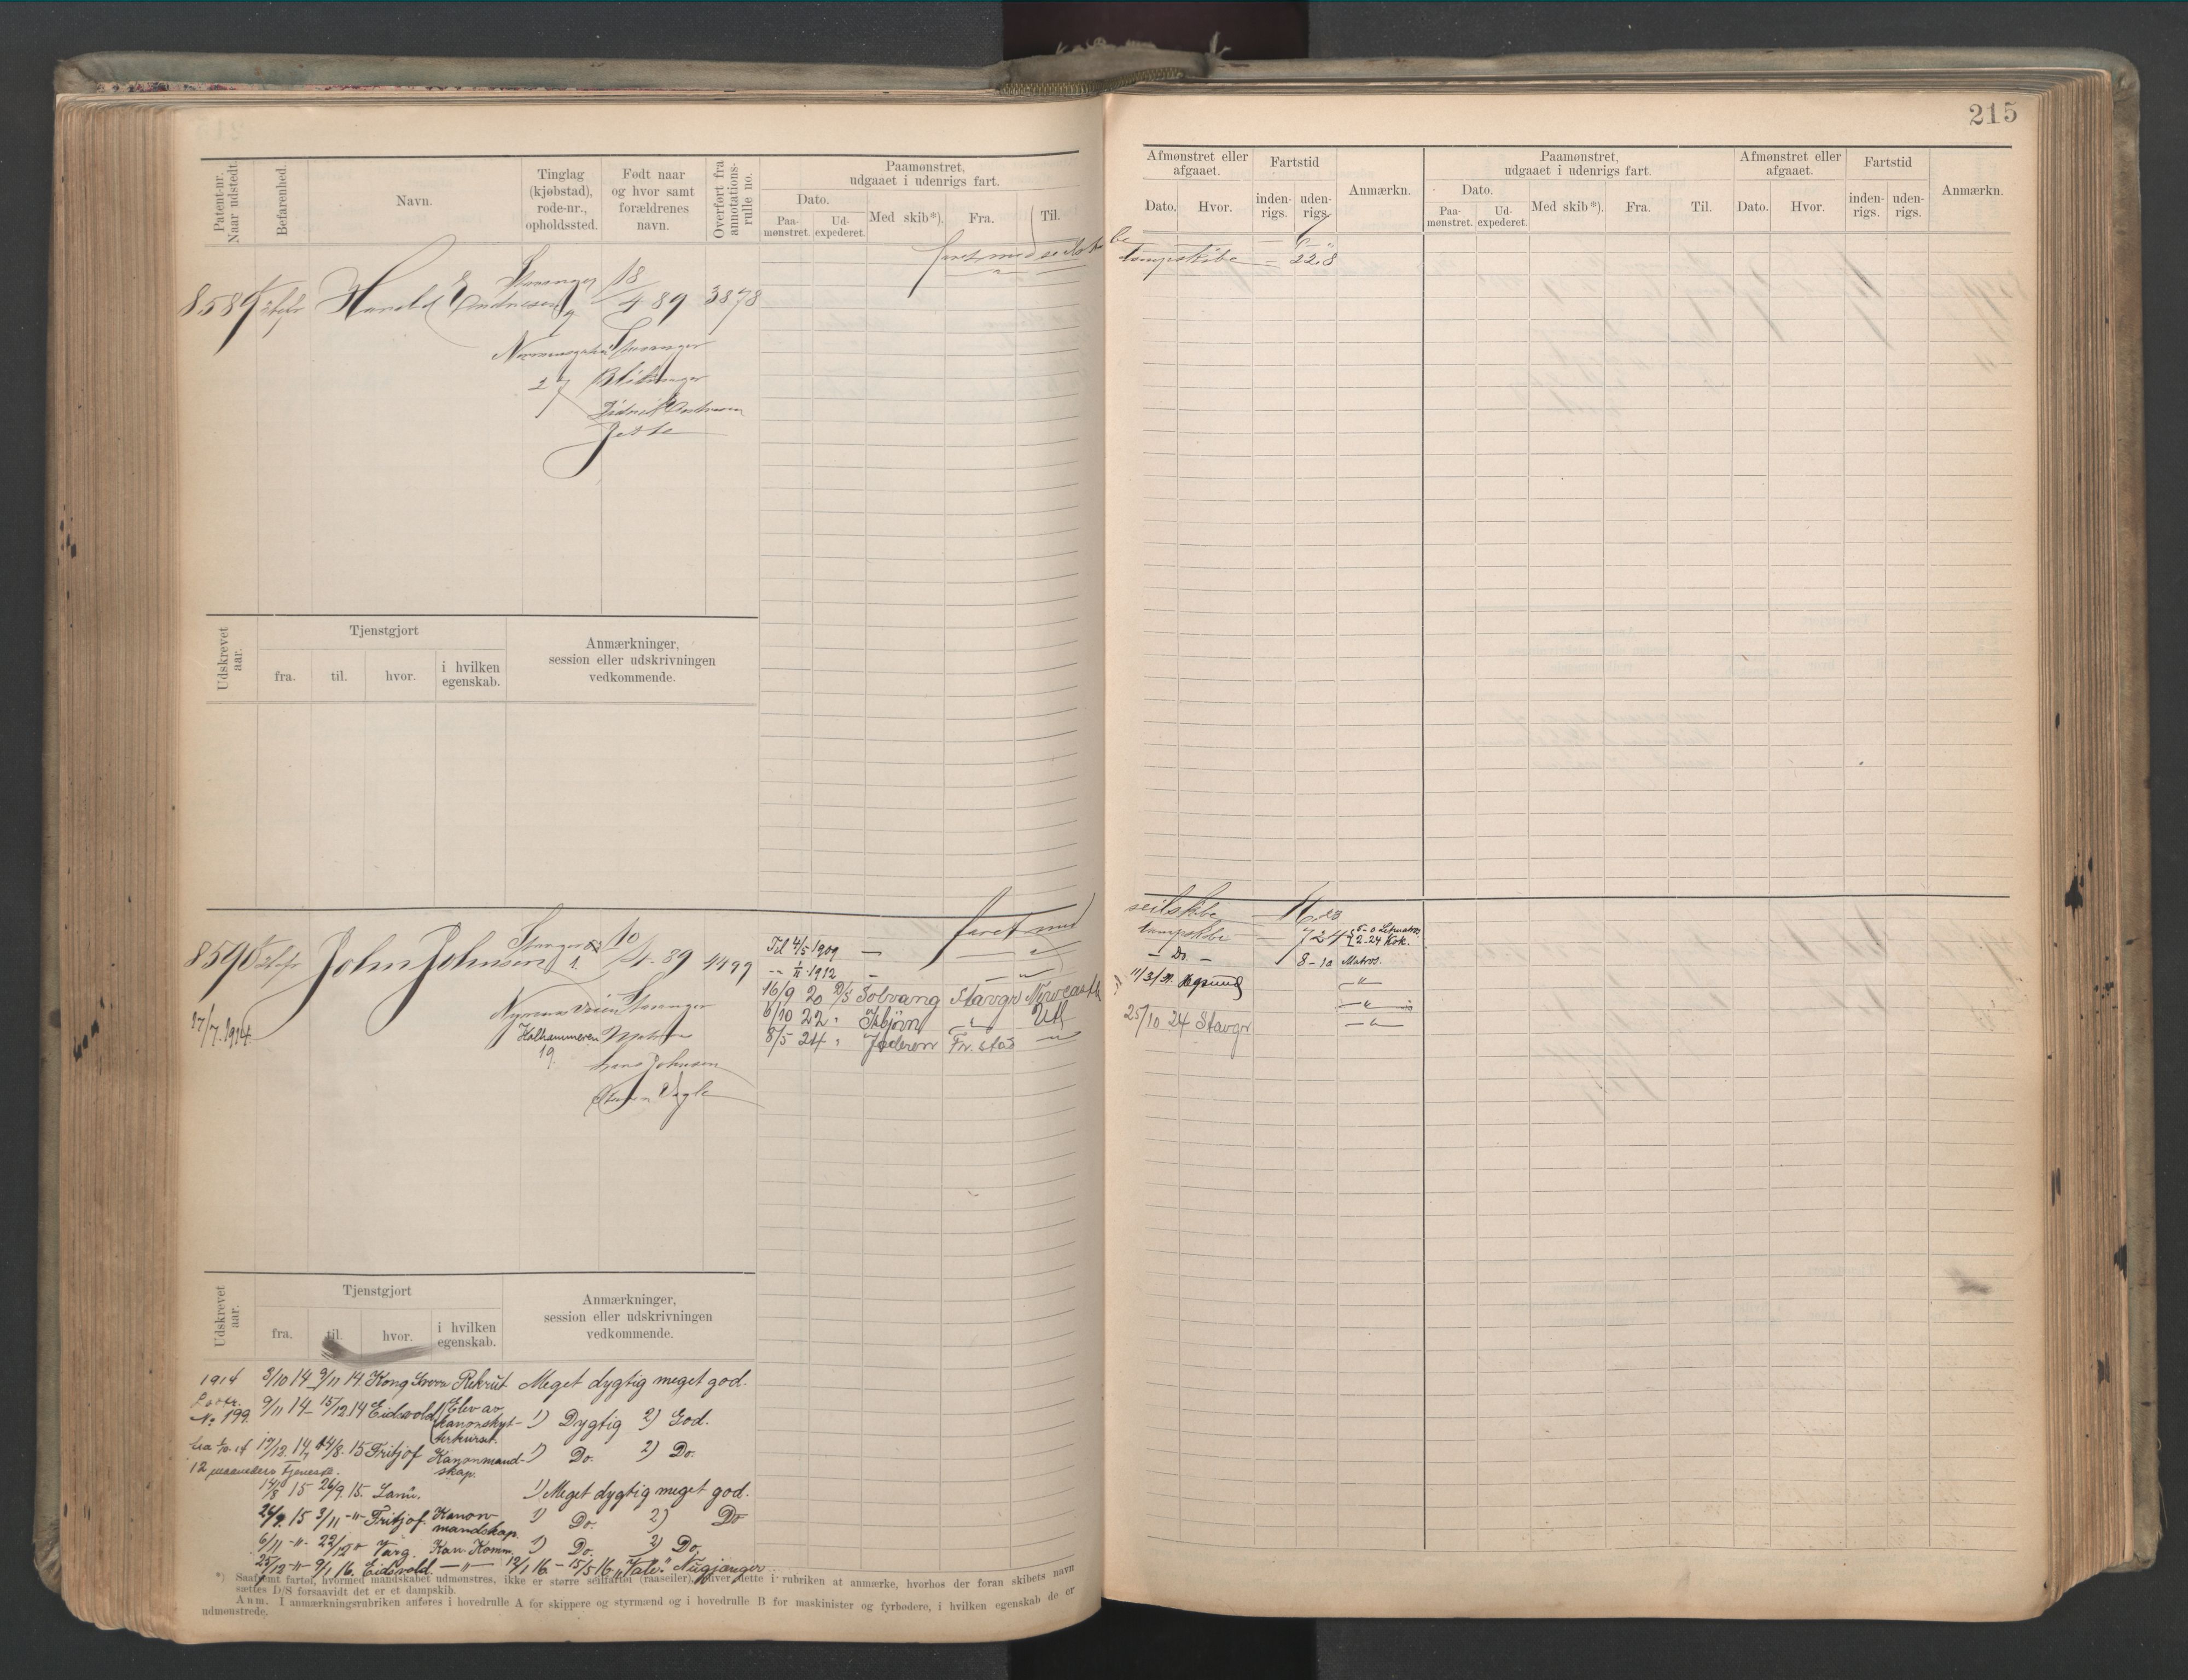 215
Patent-nr. Naar udstedt.
Befarenhed.
Navn.
Tinglag (kjøbstad), rode-nr., opholdssted.
Født naar og hvor samt forældrenes navn.
Overført fra annotations-rulle no.
Paamønstret, udgaaet i udenrigs fart.
Dato.
Paa-mønstret.
Ud-expederet.
Med skib*).
Fra.
Til.
Afmønstret eller afgaaet.
Dato.
Hvor.
Fartstid
inden-rigs.
uden-rigs.
Anmærkn.
Paamønstret, udgaaet i udenrigs fart.
Dato.
Paa-mønstret.
Ud-expederet.
Med skib*).
Fra.
Til.
Afmønstret eller afgaaet.
Dato.
Hvor.
Fartstid
inden-rigs.
uden-rigs.
Anmærkn.
faret med
22.8
8589 Harald Stavanger 18/4 89 3878
Stavanger
27
Jette
Udskrevet aar.
Tjenstgjort
fra.
til.
hvor.
i hvilken egenskab.
Anmærkninger, session eller udskrivningen vedkommende.
faret med seilskibe
8590 John Johnsen 10/4 89 4499
Til 4/5 1909 — 724 5-0 Letmatros
2-24 Kok.
1912 — Do — 8-10 Matros.
27/7.1914
16/9 20 Solvang Stavgr Newcastle
6/10 22 Isbjørn Utl
8/5 24 Jæderen Fr.stad 25/10 24 Stavgr
Stavanger
Kalhammeren
19.
Hans Johnsen
Udskrevet aar.
Tjenstgjort
fra.
til.
hvor.
i hvilken egenskab.
Anmærkninger, session eller udskrivningen vedkommende.
1914 3/10 14 9/11 14. Kong Sverre Rekrut Meget dygtig meget god.
No 199. 9/11 14 – 15/12 14 Eidsvold Elev av kanonskyt-terkurset. 1) Dygtig 2) God.
14/8. 15 Fritjof Kanonmand-skap. 1) Do. 2) Do.
12 maaneders tjeneste.
14/8 15 26/9. 15. 1) Meget dygtig meget god.
26/9. 15 3/11 -"- Fritjof. Kanon mandskap. 1) Do. 2) Do
6/11 -"- 22/12 Varg. Kan. Komm. 1) Do. 2) Do.
25/12 -"- 9/1 16. Eidsvold -"- 12/1 16 – 15/5 16 "Vale"
*) Saafremt fartøi, hvormed mandskabet udmønstres, ikke er større seilfartøi (raaseiler), bliver dette i rubriken at anmærke, hvorhos der foran skibets navn
sættes D/S forsaavidt det er et dampskib.
Anm. I anmærkningsrubriken anføres i hovedrulle A for skippere og styrmænd og i hovedrulle B for maskinister og fyrbødere, i hvilken egenskab de er
udmønstrede.